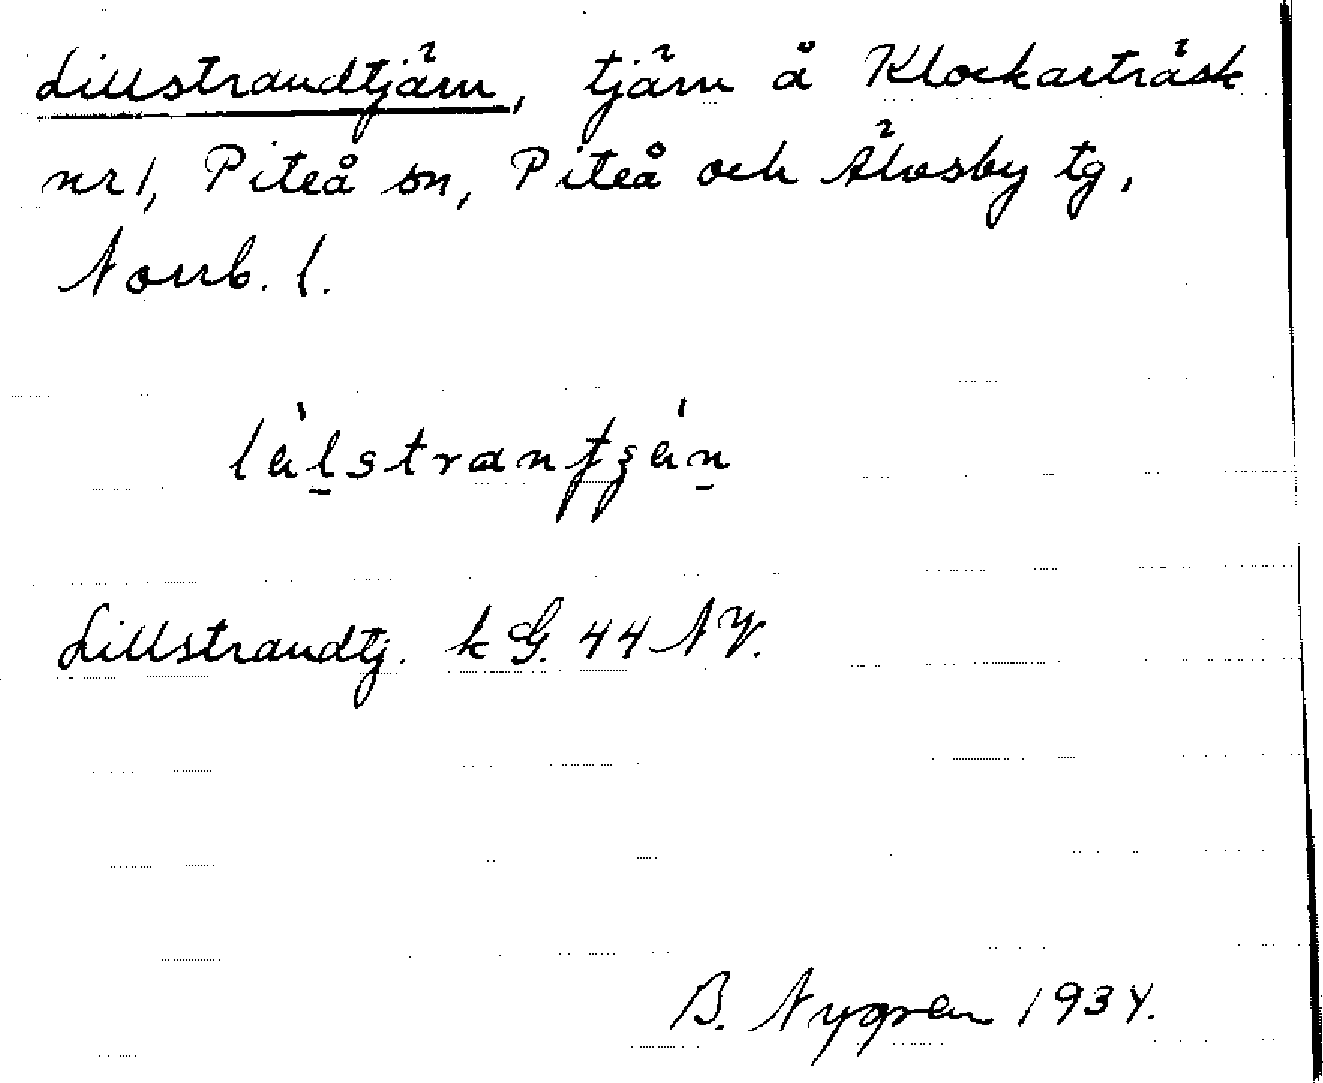 Lillstrandtjärn, tjärn å Klockarträsk
nr 1, Piteå sn, Piteå och Älvsby tg,
Norrb. l.
Lillstrandtj. k G. 44 NV.
B. Nygren 1934.